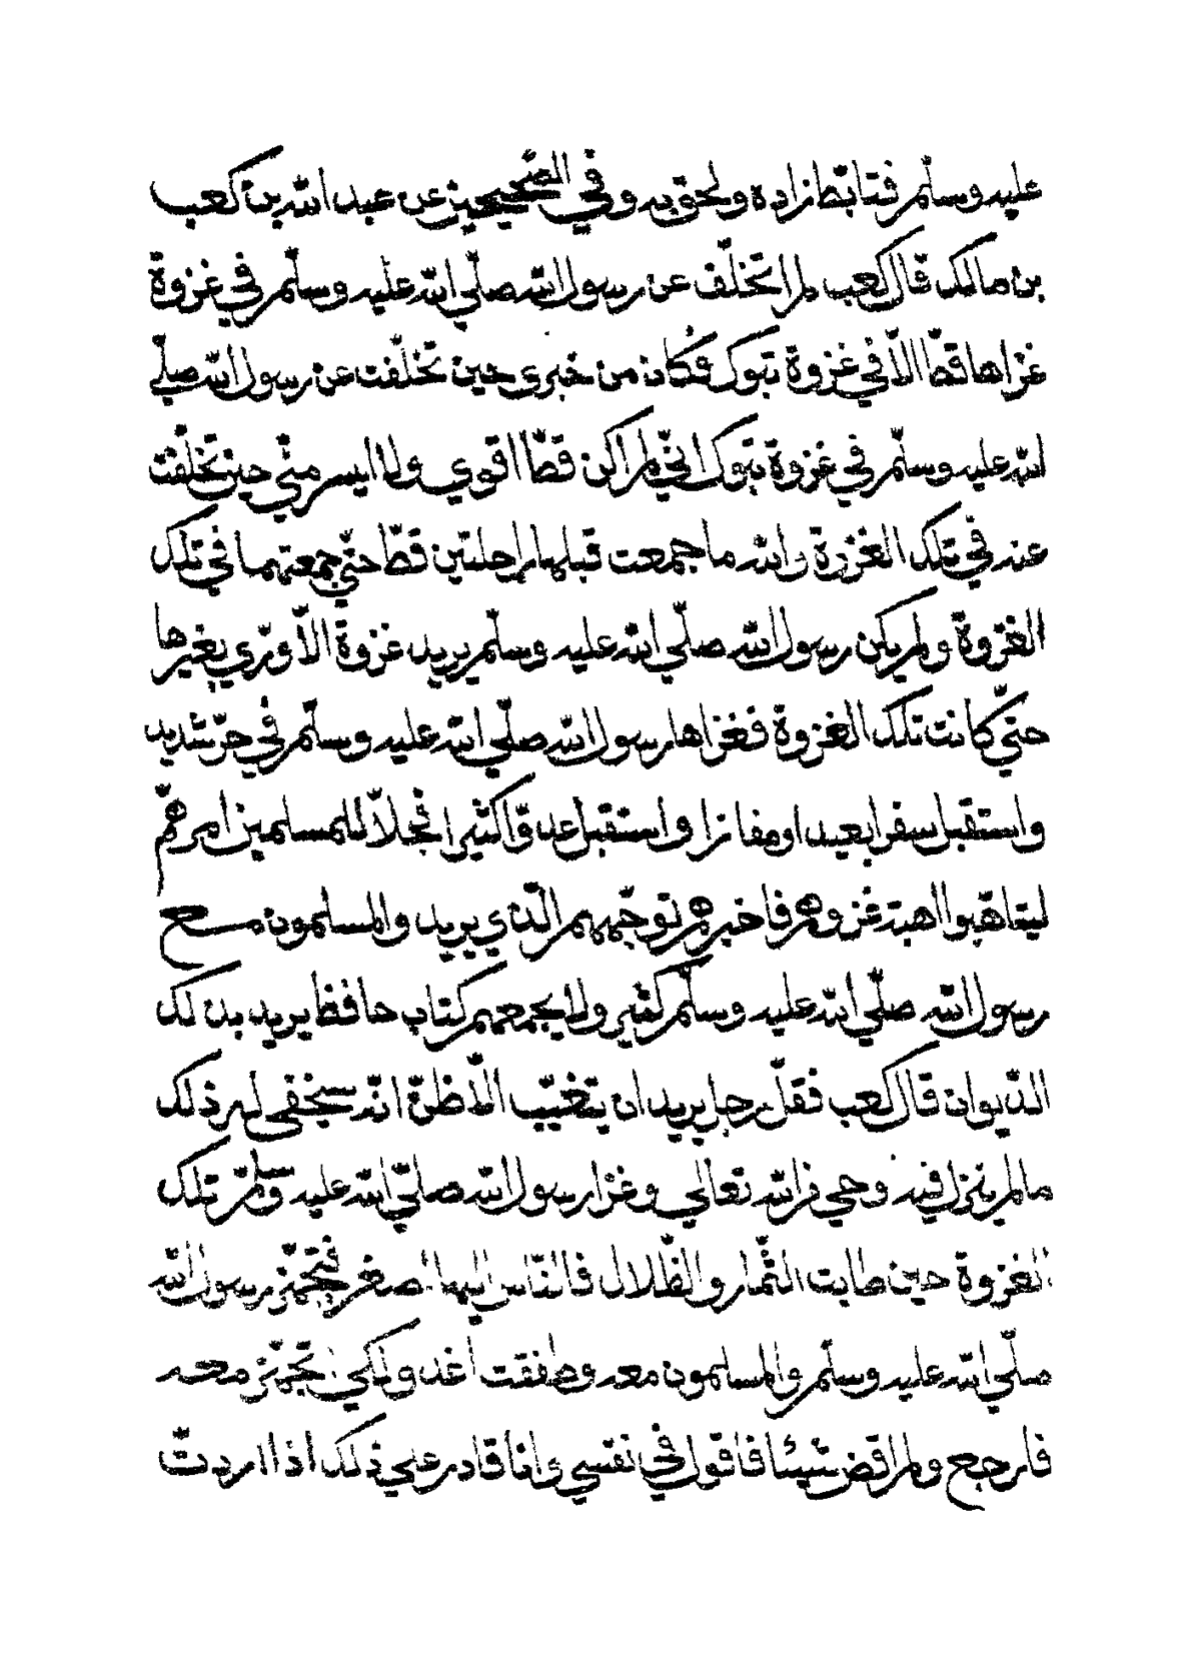 عليه وسلّم فتابّط زاده ولحق به وفي الصّحيحين عن عبد الله بن كعب
بن مالك قال كعب لم اتخلّف عن رسول الله صلّي الله عليه وسلّم في غزوة
غزاها قطّ الّا في غزوة تبوك وكان من خبري حين تخلّفت عن رسول الله صلّي
الله عليه وسلّم في غزوة تبوك انّي لم اكن قطّ اقوي ولا ايسر منّي حين تخلّفت
عنه في تلك الغزوة والله ما جمعت قبلها راحلتين قطّ حتّي جمعتهما في تلك
الغزوة ولم يكن رسول الله صلّي الله عليه وسلّم يريد غزوة الّا ورّي بغيرها
حتّي كانت تلك الغزوة فغزاها رسول الله صلّي الله عليه وسلّم في حرّ شديد
واستقبل سفرا بعيدا ومفازا واستقبل عدوّا كثيرا فجلّا للمسلمين امرهم
ليتاهّبوا اهبة غزوهم فاخبرهم توجّههم الّذي يريد والمسلمون مع
رسول الله صلّي الله عليه وسلّم كثير ولا يجمعهم كتاب حافظ يريد بذلك
الدّيوان قال كعب فقلّ رجل يريد ان يتغيّب الّا ظنّ انّه سيخفي له ذلك
مالم ينزل فيه وحي من الله تعالي وغزا رسول الله صلّي الله عليه وسلّم تلك
الغزوة حين طابت الثّمار والظّلال فانا اليها اصغر فتجهّز رسول الله
صلّي الله عليه وسلّم والمسلمون معه وطفقت اغدو لكي اتجهّز معه
فارجع ولم اقض شيئا فاقول في نفسي وانا قادر علي ذلك اذا اردت